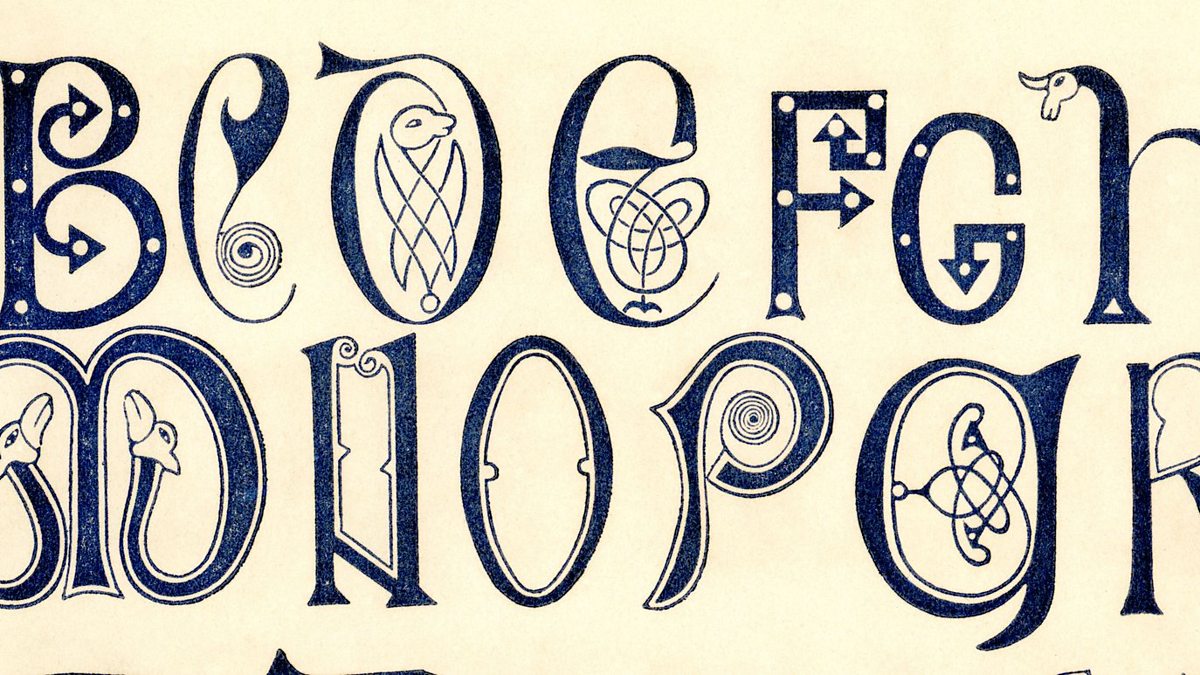 BCDEFGh
MNOPQR